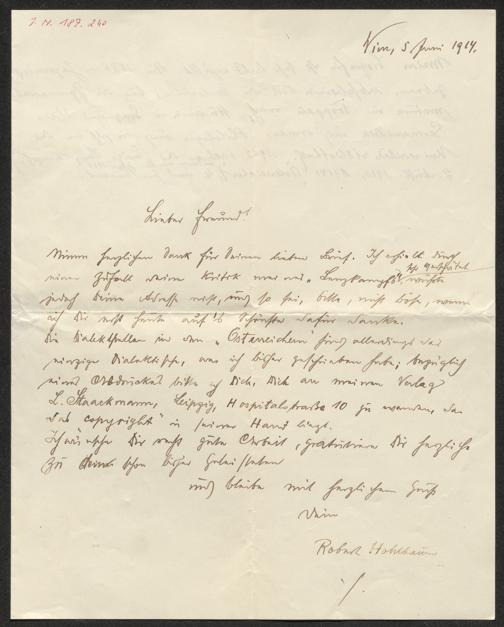 J. N. 189.240
Wien, 5. Juni 1914.
Lieber Freund!
Meinen herzlichen Dank für Deinen lieben Brief. Ich erhielt durch
einen Zufall Deine Kritik
jedoch Deine Adresse nicht, und so sei, bitte, nicht böse, wenn
ich Dir erst heute auf's Schönste dafür danke.
Die Dialektstellen in den "Österreichern" sind allerdings das
einzige Dialektische, was ich bisher geschrieben habe; bezüglich
eines Abdruckes bitte ich Dich, Dich an meinen Verlag
L. Staackmann, Leipzig, Hospitalstraße 10 zu wenden, da
das "copyright" in seiner Hand liegt.
Ich wünsche Dir recht gute Arbeit, gratuliere Dir herzlichst
zu Deinem schon bisher Geleisteten
und bleibe mit herzlichem Gruß
Dein
Robert Hohlbaum